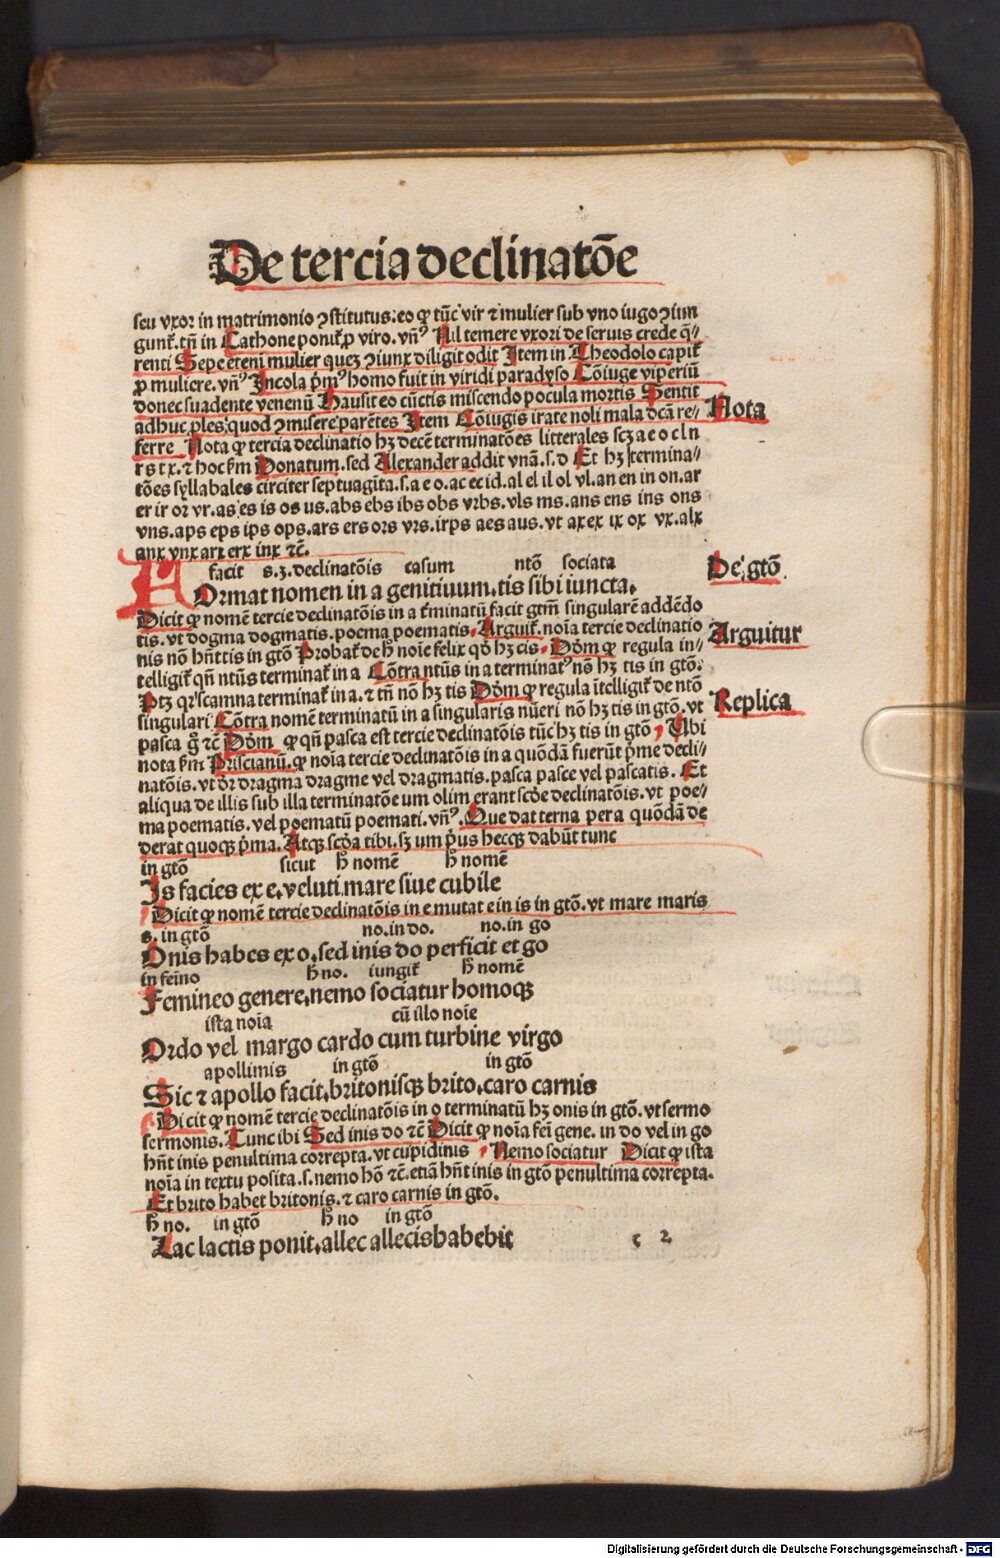 De tercia declinatōe
seu vxor in matrimonio ꝯstitutus: eo ꝙ tūc vir ⁊ mulier sub vno iugo ꝯiun
gunt̉. tn̄ in Cathone ponit̉ ꝓ viro. vn̄⁹ Nil temere vxori de seruis crede q̄⸗
renti Sepe etenim mulier quez ꝯiunx diligit odit Item in Theodolo capit̉
ꝓ muliere. vn̄⁹ Incola p̄m⁹ homo fuit in viridi paradyso Cōiuge viperiū
donec suadente venenū Hausit eo cūctis miscendo pocula mortis Sentit
adhuc ꝓles quod ꝯmisere parētes Item Cōiugis irate noli mala dcā re⸗
ferre Nota ꝙ tercia declinatio hꝫ decē terminatōes litterales scꝫ a e o c l n
r s t x. ⁊ hoc ẜm Donatum. sed Alexander addit vnā. s. d Et hꝫ termina⸗
tōes syllabales circiter septuagīta. s. a e o. ac ec id. al el il ol vl. an en in on. ar
er ir or vr. as es is os us. abs ebs ibs obs vrbs. vls ms. ans ens ins ons
vns. aps eps ips ops. ars ers ors vrs. irps aes aus. vt ax ex ix ox vx. alx
anx vnx arx erx inx ⁊c̄.
Nota
facit s. ꝫ. declinatōis casum ntō sociata
FOrmat nomen in a genitiuum. tis sibi iuncta.
De gtō
Dicit ꝙ nomē tercie declinatōis in a t̉minatū facit gtm̄ singularē addēdo
tis. vt dogma dogmatis. poema poematis. Arguit̉. noīa tercie declinatio
nis nō hn̄t tis in gtō Probat̉ de ħ noīe felix qd̓ hꝫ cis. Dōm ꝙ regula in⸗
telligit̉ qn̄ ntūs terminat̉ in a Cōtra ntūs in a terminat⁹ nō hꝫ tis in gtō.
Ptꝫ qr̉ scamna terminat̉ in a. ⁊ tn̄ nō hꝫ tis Dōm ꝙ regula ītelligit̉ de ntō
singulari Cōtra nomē terminatū in a singularis nūeri nō hꝫ tis in gtō. vt
pasca g̉ ⁊c̄ Dōm ꝙ qn̄ pasca est tercie declinatōis tūc hꝫ tis in gtō Ubi
nota ẜm Priscianū. ꝙ noīa tercie declinatōis in a quōdā fuerūt p̄me decli⸗
natōis. vt dr̄ dragma dragme vel dragmatis. pasca pasce vel pascatis. Et
aliqua de illis sub illa terminatōe um olim erant scd̓e declinatōis. vt poe⸗
ma poematis. vel poematū poemati. vn̄⁹. Que dat terna pera quōdā de
derat quoqꝫ p̄ma. Atqꝫ scd̓a tibi. sꝫ um p̄us hecqꝫ dabūt tunc
Arguitur
Replica
in gtō sicut ħ nomē ħ nomē
Is facies ex e. veluti mare siue cubile
Dicit ꝙ nomē tercie declinatōis in e mutat e in is in gtō. vt mare maris
s. in gtō no. in do. no. in go
Onis habes ex o. sed inis do perficit et go
in feīno ħ no. iungit̉ ħ nomē
Femineo genere. nemo sociatur homoqꝫ
ista noīa cū illo noīe
Ordo vel margo cardo cum turbine virgo
apollinis in gtō in gtō
Sic ⁊ apollo facit. britonisqꝫ brito. caro carnis
Dicit ꝙ nomē tercie declinatōis in o terminatū hꝫ onis in gtō. vt sermo
sermonis. Tunc ibi Sed inis do ⁊c̄ Dicit ꝙ noīa feī gene. in do vel in go
hn̄t inis penultima correpta. vt cupidinis Nemo sociatur Dicit ꝙ ista
noīa in textu posita. s. nemo hō ⁊c̄. etiā hn̄t inis in gtō penultima correpta.
Et brito habet britonis. ⁊ caro carnis in gtō.
ħ no. in gtō ħ no in gtō
Lac lactis ponit. allec allecis habebit
c 2
Digitalisierung gefördert durch die Deutsche Forschungsgemeinschaft - DFG